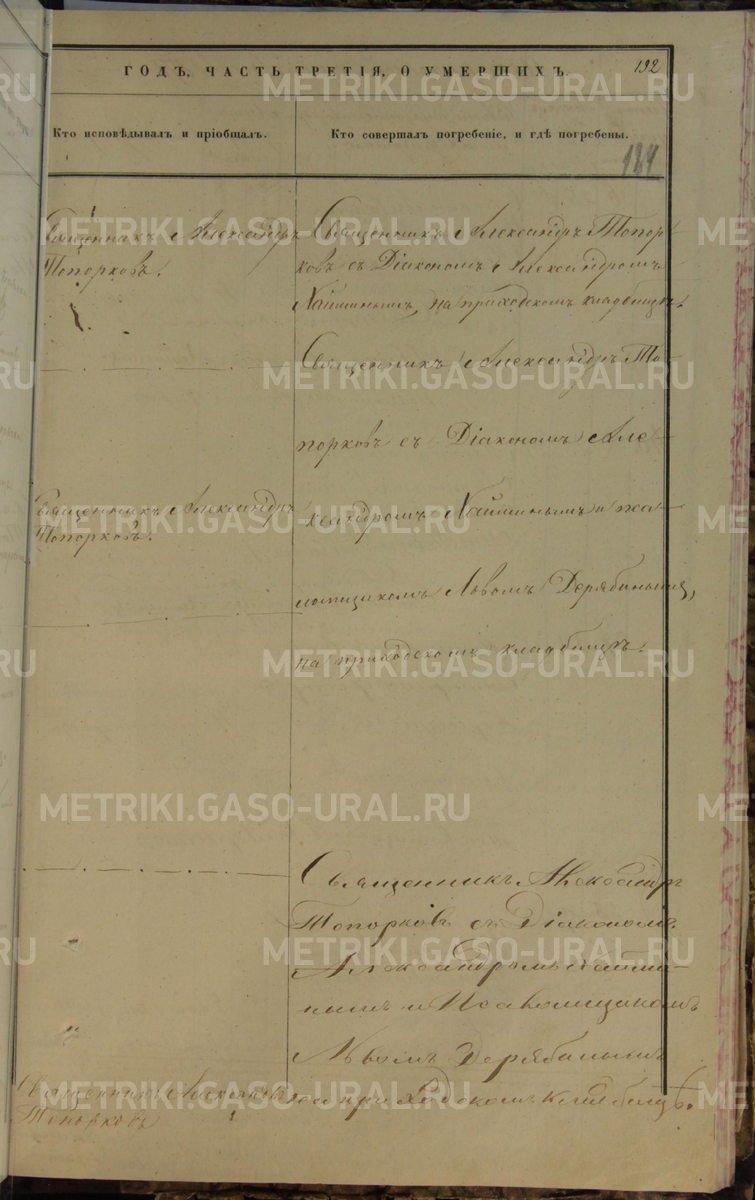 192
ГОДЪ, ЧАСТЬ ТРЕТІЯ, О УМЕРШИХЪ.
Кто исповѣдывалъ и пріобщалъ.
Кто совершалъ погребеніе, и гдѣ погребены.
184
Священникъ Александръ
Топорковъ.
Священникъ Александръ Топор-
ковъ съ Діакономъ Александромъ
на приходскомъ кладбищѣ.
Священникъ Александръ То-
порковъ съ Діакономъ Але-
ксандромъ и
Львомъ Дерябинымъ,
на приходскомъ кладбищѣ.
Священникъ Александръ
Топорковъ.
Священникъ Александръ
Топорковъ съ Діакономъ
Александромъ
и Псаломщикомъ
Львомъ Дерябинымъ
на приходскомъ кладбищѣ.
Священникъ Александръ
Топорковъ
METRIKI.GASO-URAL.RU